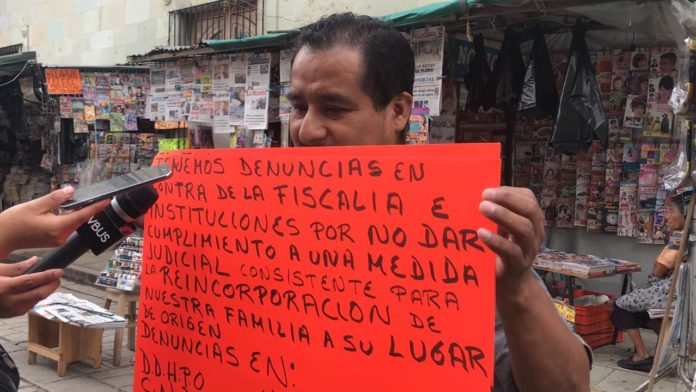 TENEMOS DENUNCIAS EN
CONTRA DE LA FISCALIA E
INSTITUCIONES POR NO DAR
CUMPLIMIENTO A UNA MEDIDA
JUDICIAL CONSISTENTE PARA
LA REINCORPORACION DE
NUESTRA FAMILIA A SU LUGAR
DE ORIGEN
DENUNCIAS EN:
D.D.H.P.O
VBUS